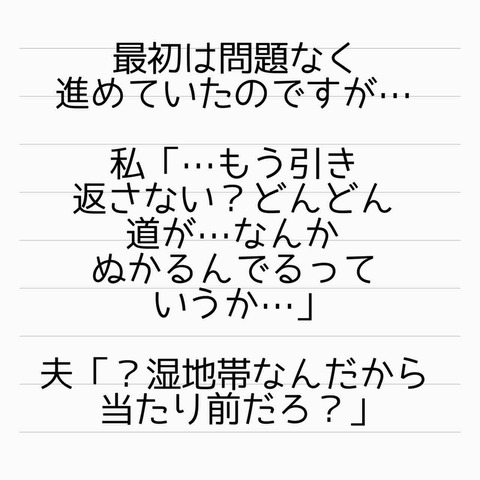 最初は問題なく
進めていたのですが…
私「…もう引き
返さない？どんどん
道が…なんか
ぬかるんでるって
いうか…」
夫「？湿地帯なんだから
当たり前だろ？」